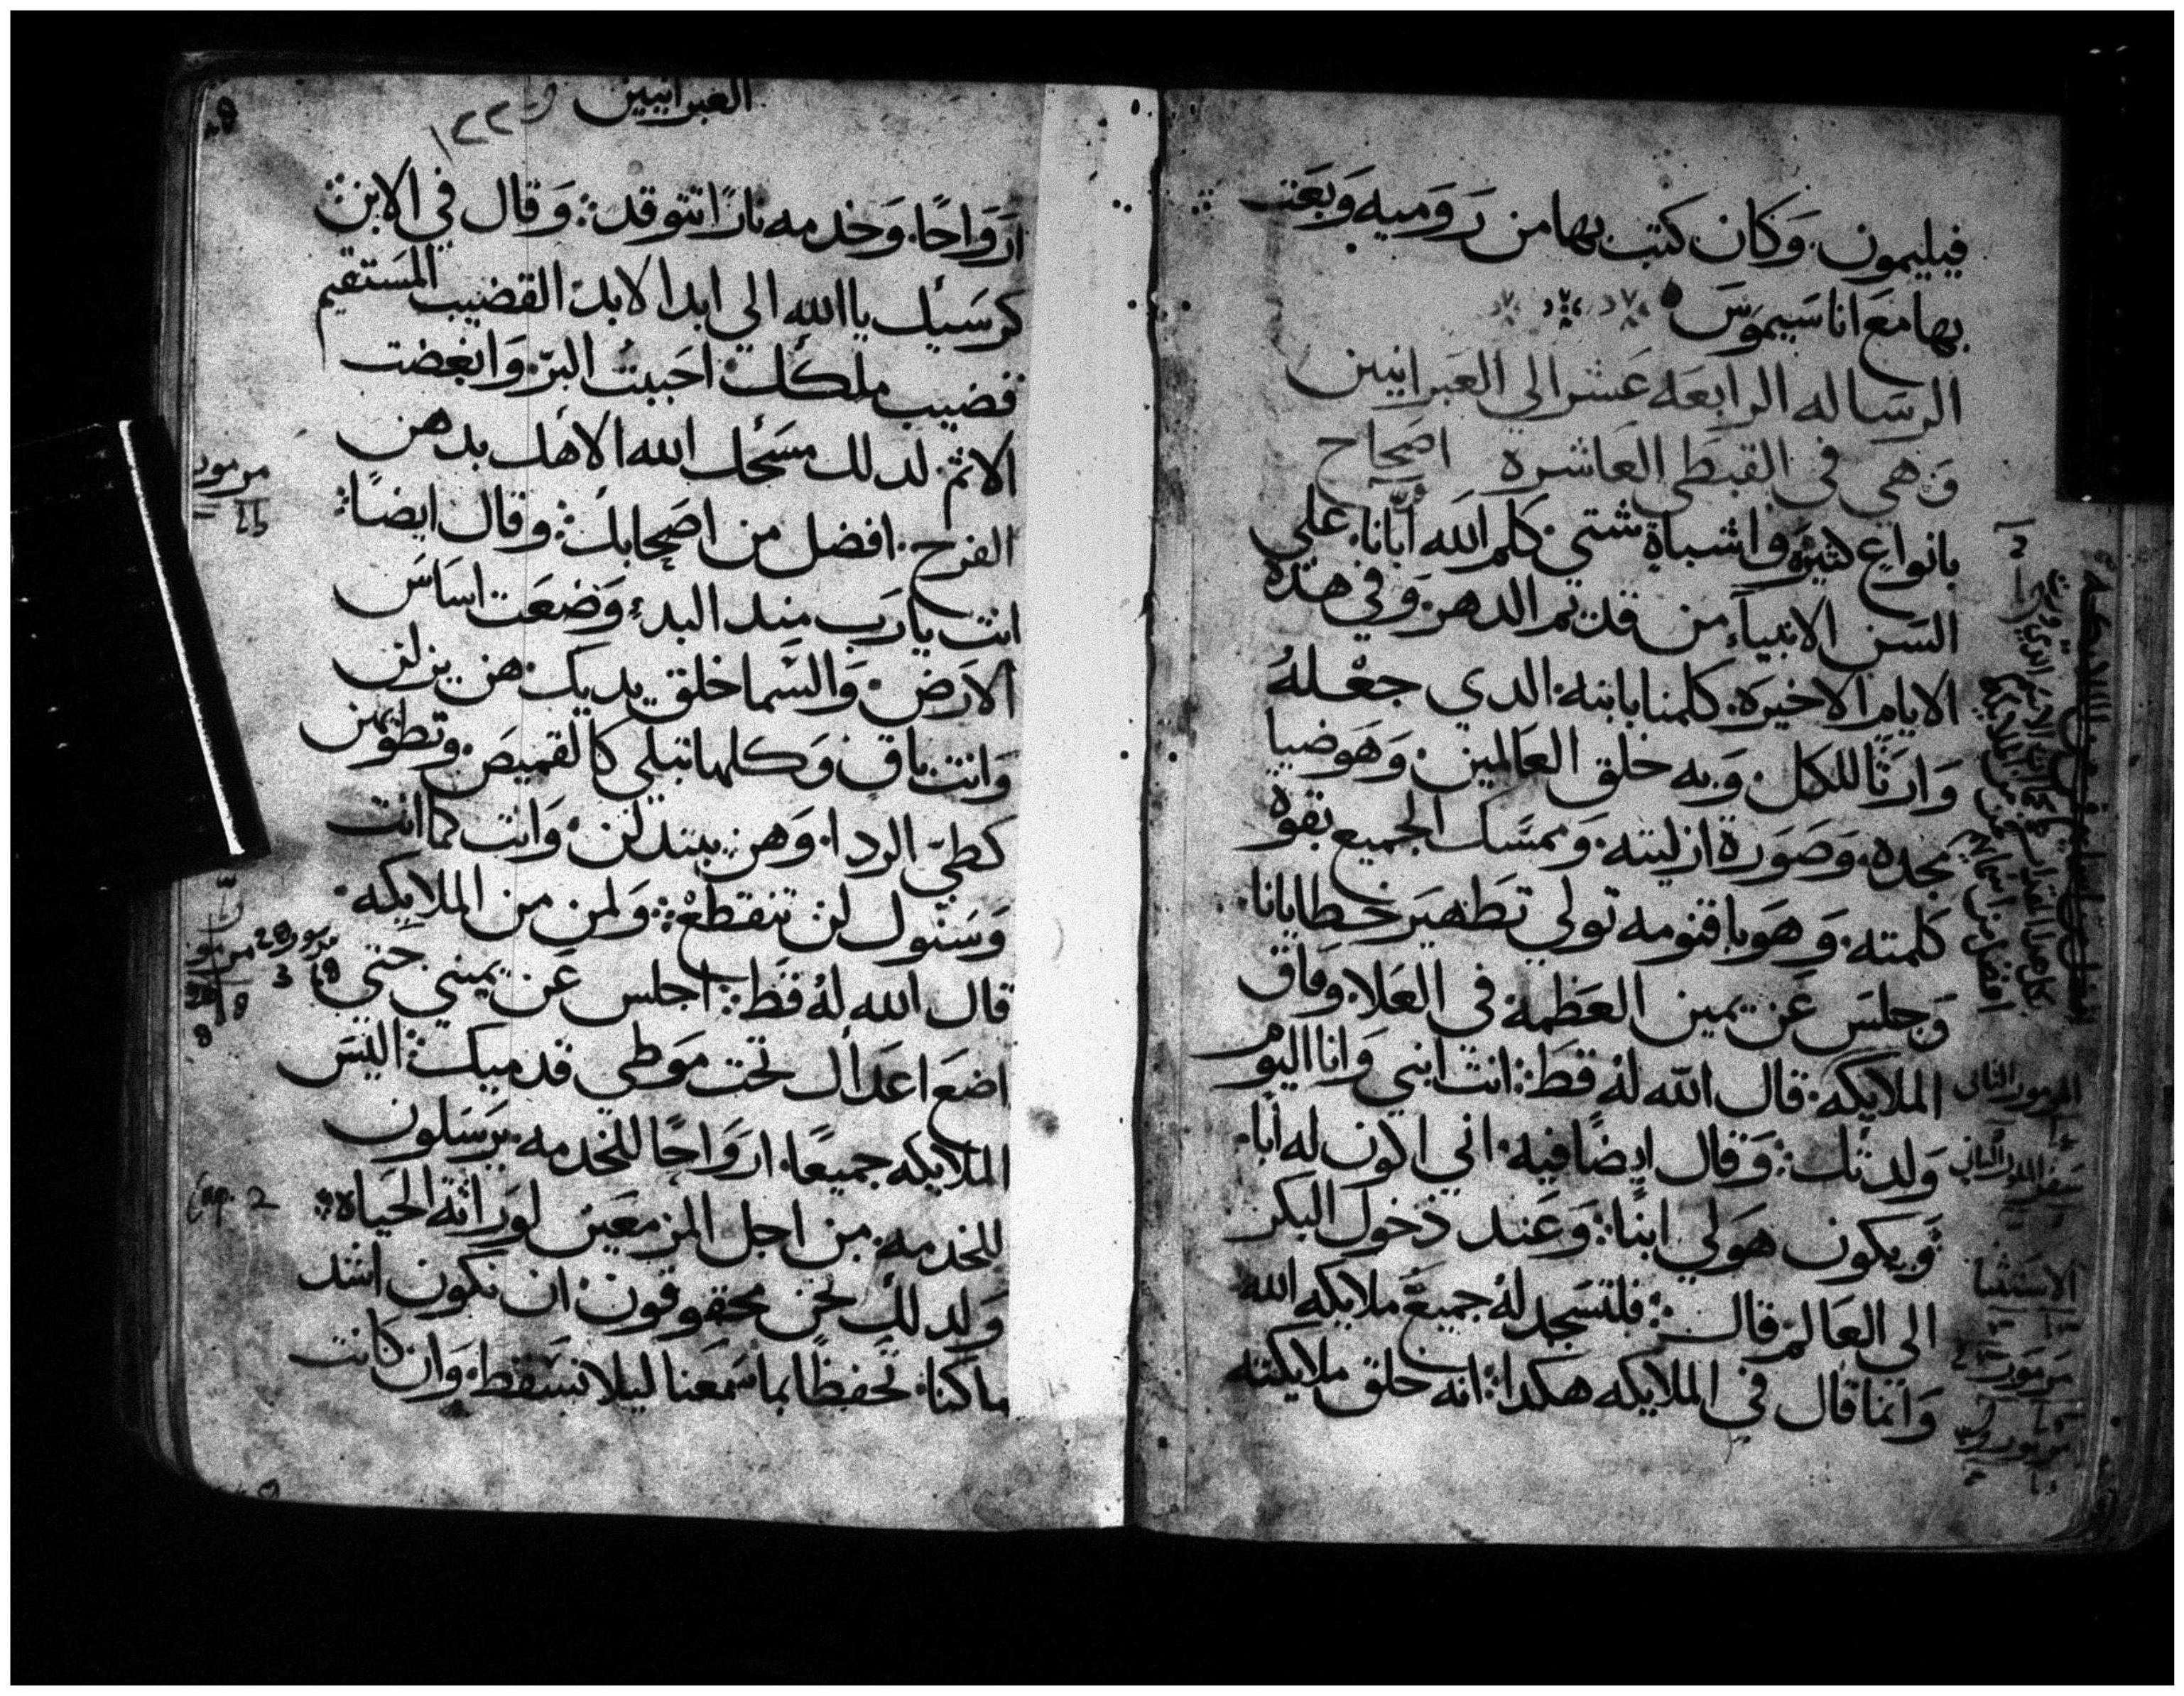 فيليمون. وَكان كتب بها من رَوميه وَبَعَت
بها معَ اناسَيموَسَ
الرسَاله الرابعَه عَشر الي العَبرانيين
وَهي في القبطي العَاشره اصَحاح
بانواعٍ كثيرَه واشباةٍ شتي. كلم اللَه أبّانا. علي
السَن الانبياءِ من قديم الدهر. وَفي هده
الايام الاخيرَه. كلمنا بابنه. الدي جعْلهُ
وَارثًا للكل. وَبه خلق العَالمين. وَهوَ ضيا
مجده. وَصَورة ازليته. وَممسَك الجميع بقوة
كلمته. وَهوَ باقنومه تولي تطهيَر خطايانا.
وَجلسَ عَن يمين العَظمة في العَلا. وَفاق
الملايكه. قال اللَه لهُ قط: انت ابني وَانا اليوَم
وَلدتك: وَقال ايضًا فيه. اني اكون له أبا.
وَيكون هوَ لي ابنًا: وَعَند دخول البكر
الي العَالم قال: فلتسَجد لهُ جميعَ ملايكه الله
وَانما قال في الملايكه هكدا: انه خلق ملايكته
المزمور الثاني
الاستثنا
مزمور
العَبرانيين
١٢٢
ارَوَاحًا. وَخدمه نارًا تتوقد: وَقال في الابن:
كرسَيك يا اللَه الي ابد الابد. القضيب المسَتقيم
قضيب ملكك. احَببت البرّ. وَابغضت
الاثم. لدلك مسَحك اللَه الاهك بدهن
الفرح. افضل من اصَحابك: وقال ايضًا:
انت يا رَب مند البدءِ وَضعَت اسَاسَ
الارَض. وَالسَما خلق يديك. هن يزلن
وَانت باقٍ وَكلها تبلي كالقميصَ. وتطويهن
كطيّ الردا. وَهن يبتدلن. وَانت كما انت
وَسَنوك لن تنقطعْ: وَلمن من الملايكه.
قال اللَه لهُ قط: اجلس عَن يميني حَتي
اضعَ اعَداك تحت موَطي قدميك: اليسَ
الملايكه جميعًا. ارَوَاحًا للخدمه. يرسَلون
للخدمه. من اجل المزمعَين لوَراثة الحَياه:
وَلدلك نحن محقوقون. ان نكون اشد
ما كنا. تحَفظًا بما سَمعَنا ليلا نسَقط. وَان كانت
مزمور
مزمور
Cap. 2